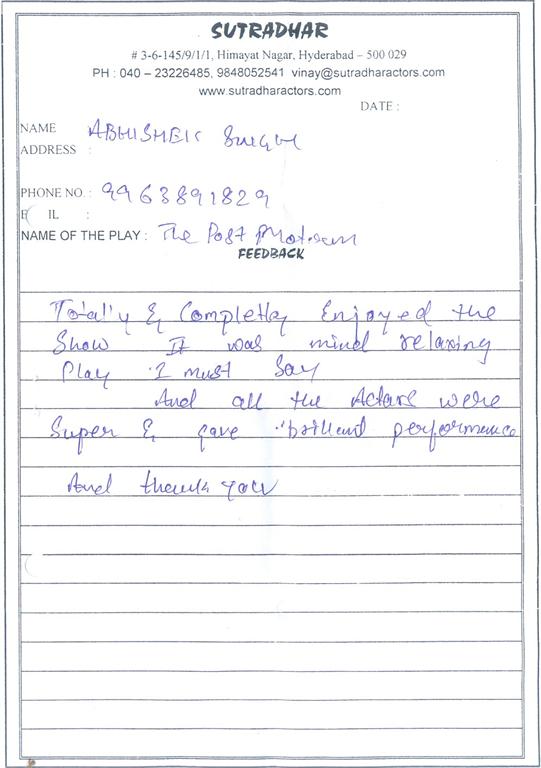 SUTRADHAR
# 3-6-145/9/1/1, Himayat Nagar, Hyderabad – 500 029
PH : 040 – 23226485, 9848052541 vinay@sutradharactors.com
www.sutradharactors.com
DATE :
NAME ABHISHEK Singh
ADDRESS :
PHONE NO. : 9963891829
E IL :
NAME OF THE PLAY : The Post Motem
FEEDBACK
Totally & Completly Enjoyed the
Show It was mind relaxing
Play I must Say
And all the Actors were
Super & gave brilliant performance
And thank you